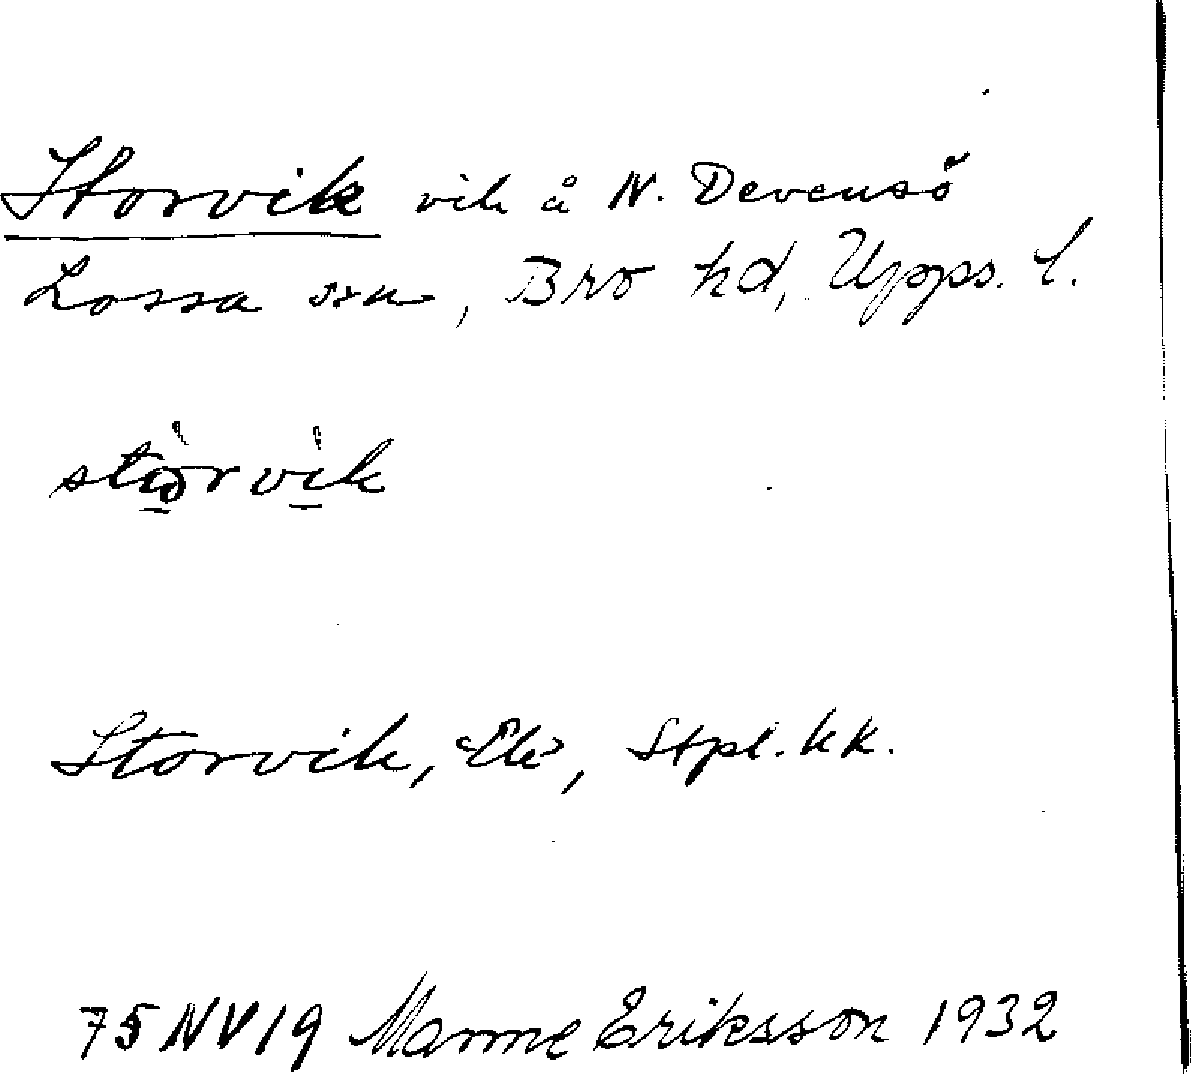 Storvik vik å N. Devensö
Lossa sn, Bro hd, Upps. l.
Storvik, Ek, Stpl. kk.
75 NV 19 Manne Eriksson 1932